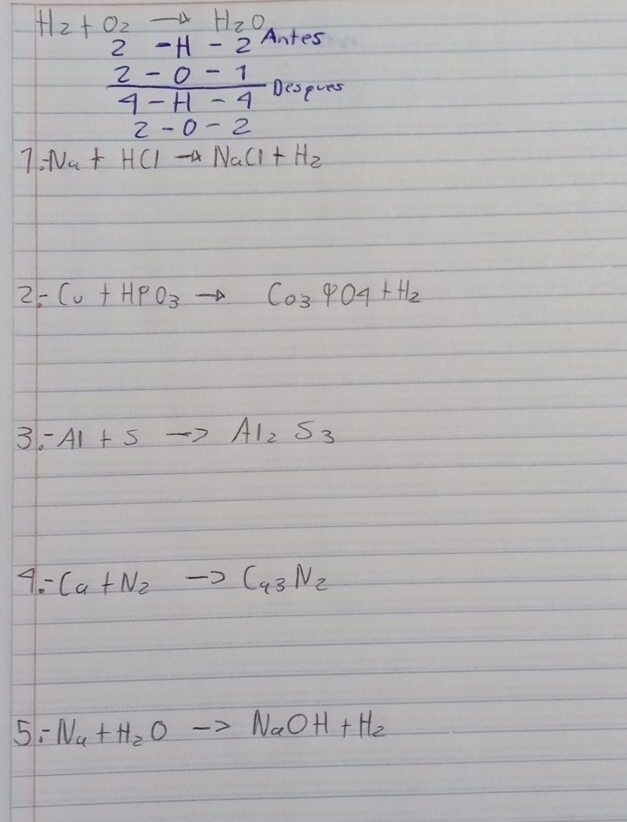 H₂ + O₂ → H₂O
2 - H - 2 Antes
2 - O - 1
4 - H - 4 Despues
2 - O - 2
1.- Na + HCl → NaCl + H₂
2.- Cu + HPO₃ → Co₃PO4 + H₂
3.- Al + S → Al₂S₃
4.- Ca + N₂ → Ca₃N₂
5.- Na + H₂O → NaOH + H₂